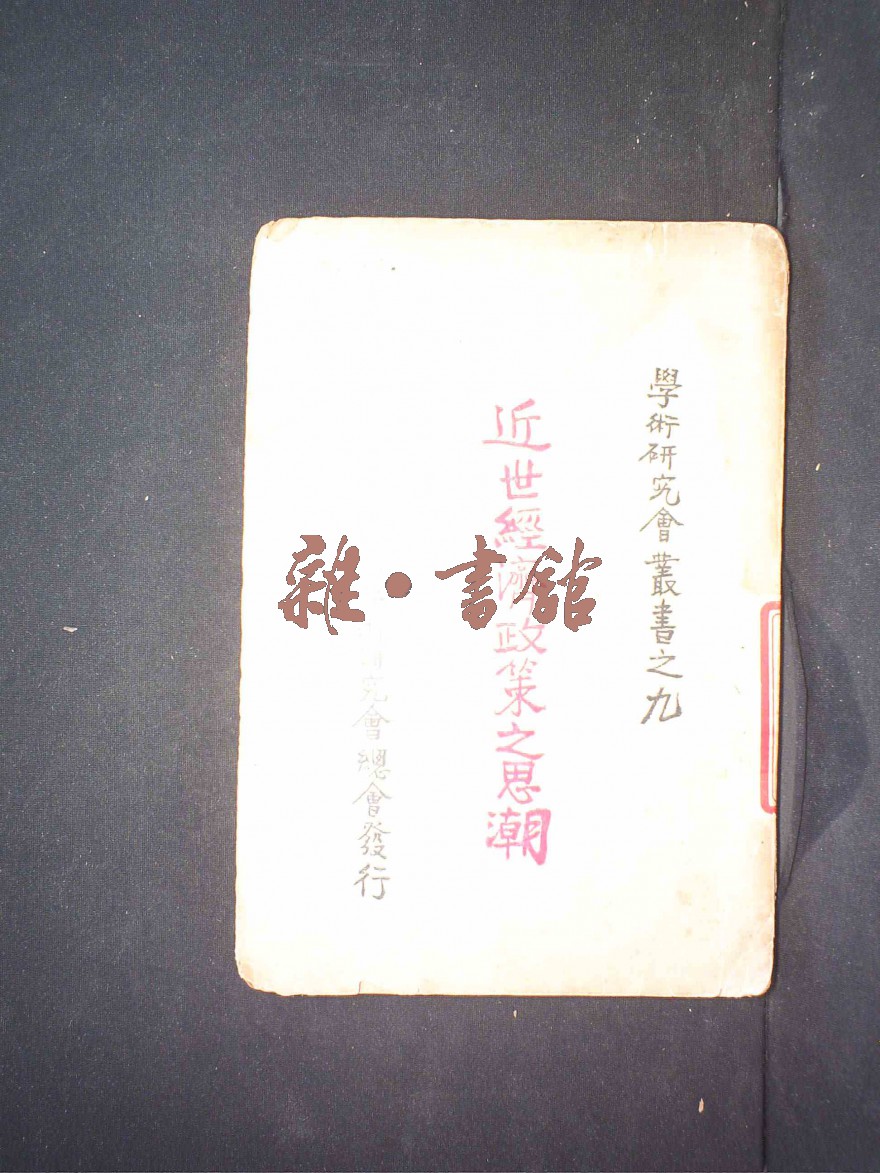 學術研究會叢書之九
近世經濟政策之思潮
研究會總會發行
雜·書館